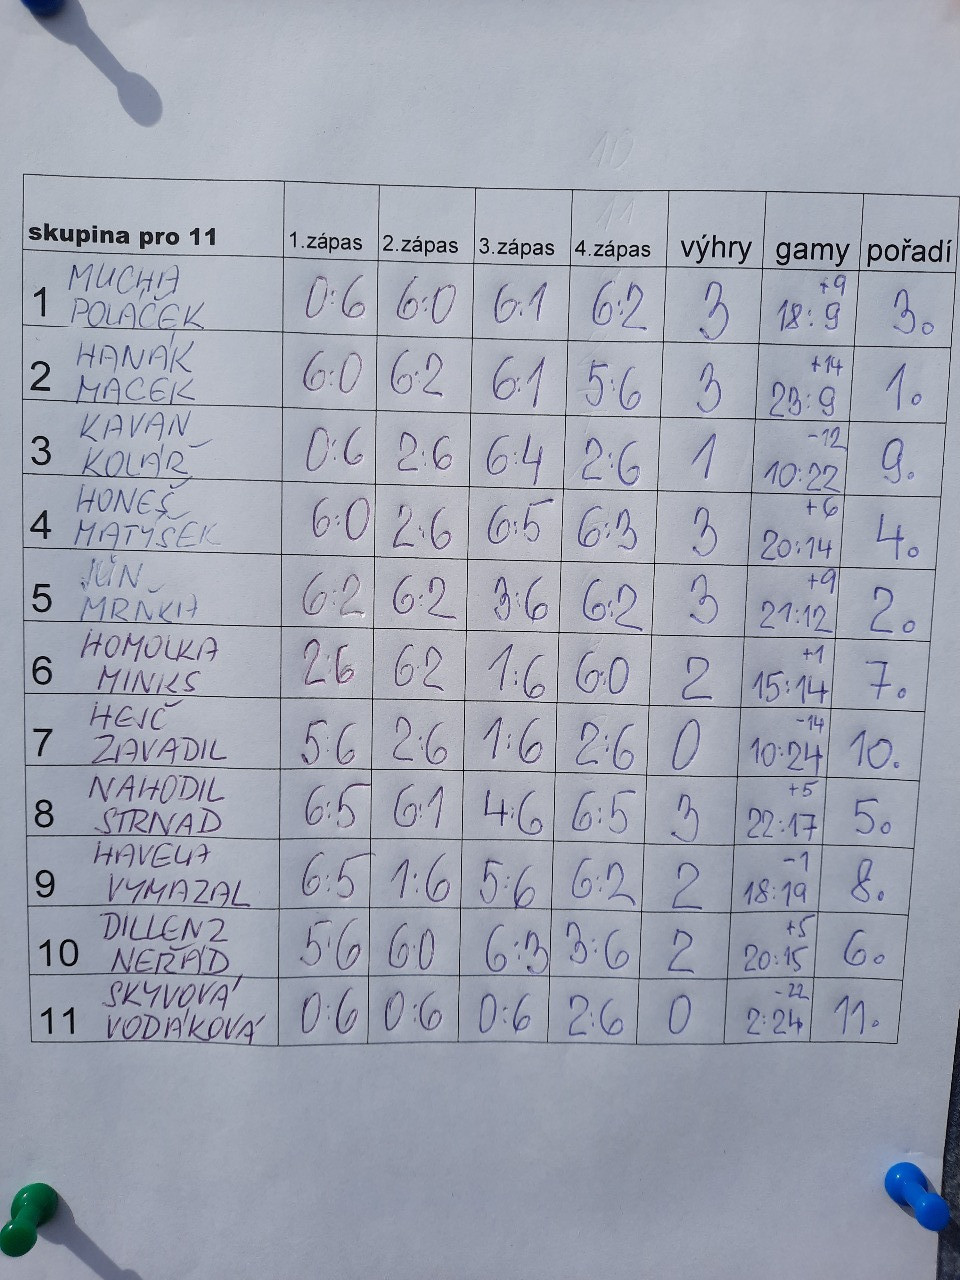 skupina pro 11 1.zápas 2.zápas 3.zápas 4.zápas výhry gamy pořadí
1 MUCHA POLÁČEK 0:6 6:0 6:1 6:2 3 +9 18:9 3.
2 HANÁK MACEK 6:0 6:2 6:1 5:6 3 +14 23:9 1.
3 KAVAN KOLÁŘ 0:6 2:6 6:4 2:6 1 -12 10:22 9.
4 HONEŠ MATYSEK 6:0 2:6 6:5 6:3 3 +6 20:14 4.
5 JŮN MRŇKA 6:2 6:2 3:6 6:2 3 +9 21:12 2.
6 HOMOLKA MINKS 2:6 6:2 1:6 6:0 2 +1 15:14 7.
7 HEJČ ZAVADIL 5:6 2:6 1:6 2:6 0 -14 10:24 10.
8 NAHODIL STRNAD 6:5 6:1 4:6 6:5 3 +5 22:17 5.
9 HAVELA VYMAZAL 6:5 1:6 5:6 6:2 2 -1 18:19 8.
10 DILLENZ NEŘÁD 5:6 6:0 6:3 3:6 2 +5 20:15 6.
11 SKYVOVÁ VODÁKOVÁ 0:6 0:6 0:6 2:6 0 -22 2:24 11.